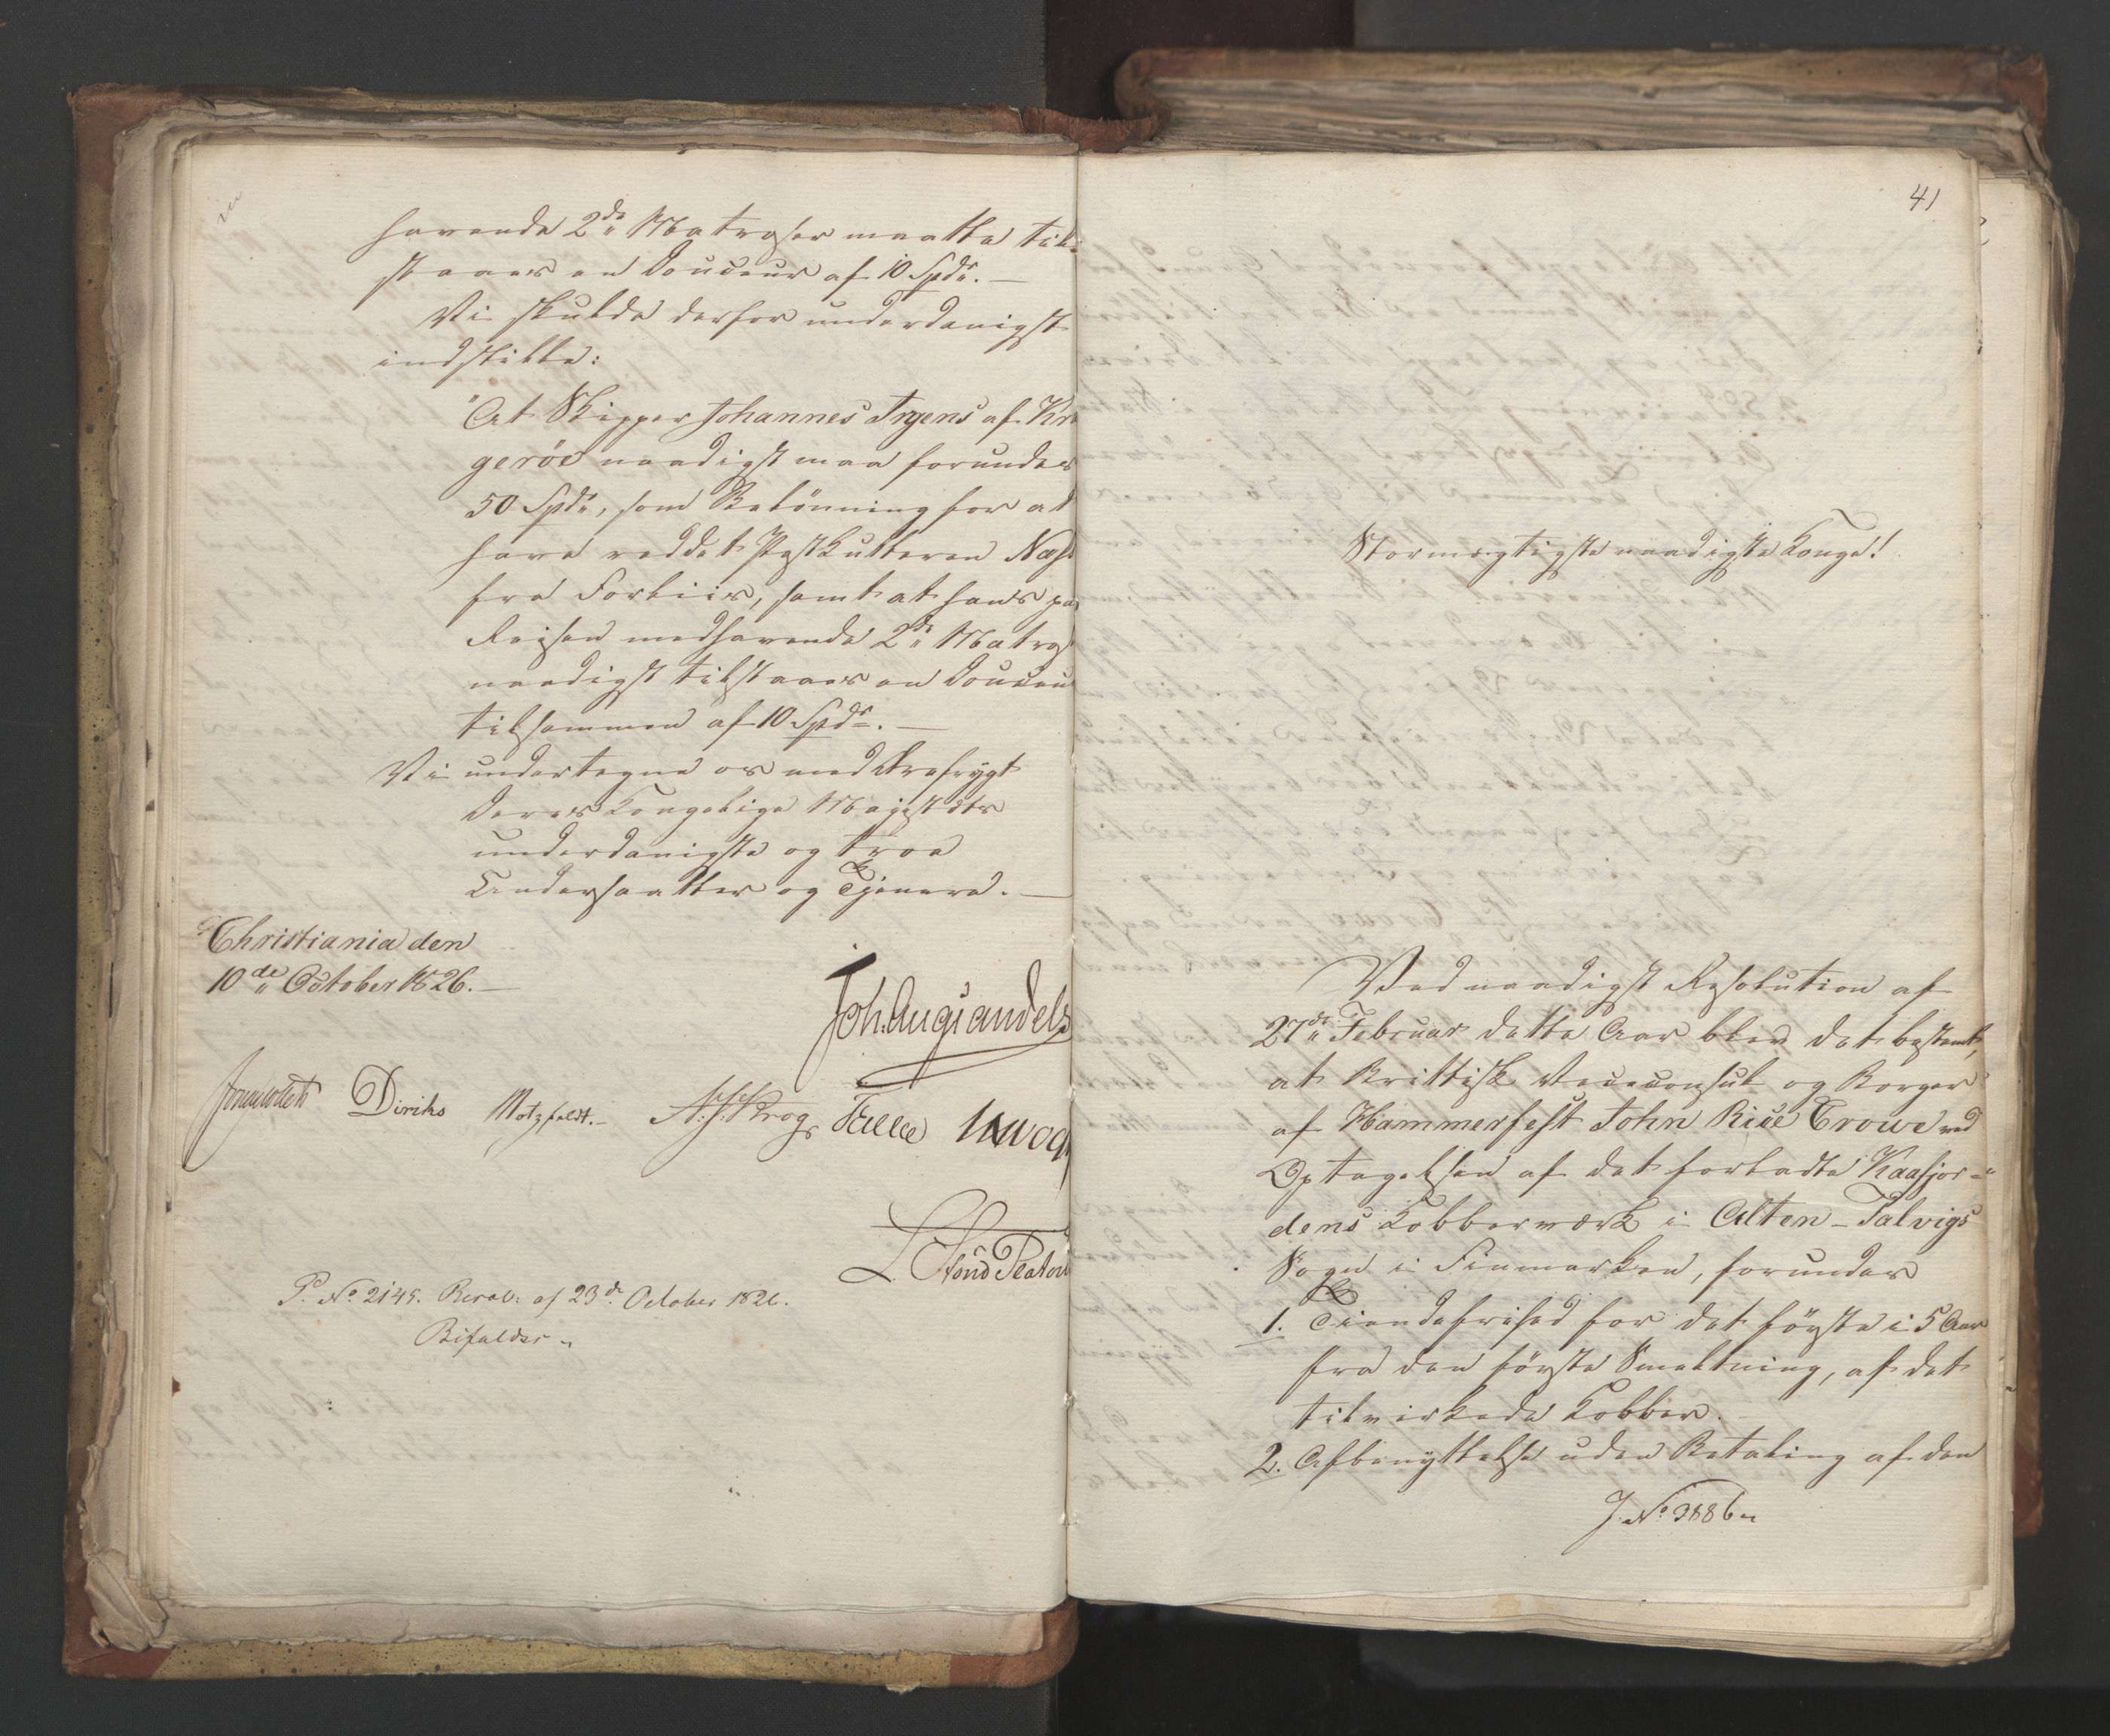 havende 2de Matroser maatte til-
staaes en Douceur af 10 Spdr. —
Vi skulde derfor underdanigst
indstille:
"At Skipper Johannes Irgens af Kra
geröe naadigst maa forundes
50 Spdr, som Belönning for at
have reddet Postkutteren
fra Forliis, samt at hans paa
Reisen medhavende 2de Matros
naadigst tilstaaes en Douceur
tilsammen af 10 Spdr. —
Vi undertegne os med Ærefrygt
Deres Kongelige Majestæts
underdanigste og troe
Undersaatter og Tjenere. —
Christiania den
10de October 1826. —
Joh. Aug. Sandels
Diriks Motzfeldt. — Krog
P. No 2145. Resol: af 23de October 1826.
Bifaldes
41
Stormægtigste naadigste Konge!
Ved naadigst Resolution af
27de Februar dette Aar blev det bestemt,
at Brittisk Viceconsul og Borger
af Hammerfest John Rice Crowe ved
Optagelsen af det forladte Kaafjor-
dens Kobberværk i Alten-Talvigs
Sogn i Finmarken, forundes
1. Tiendefrihed for det förste i 5 Aar
fra den förste Smeltning, af det
tilvirkede Kobber. —
2. Afbenyttelse uden Betaling af den
J. No 3886